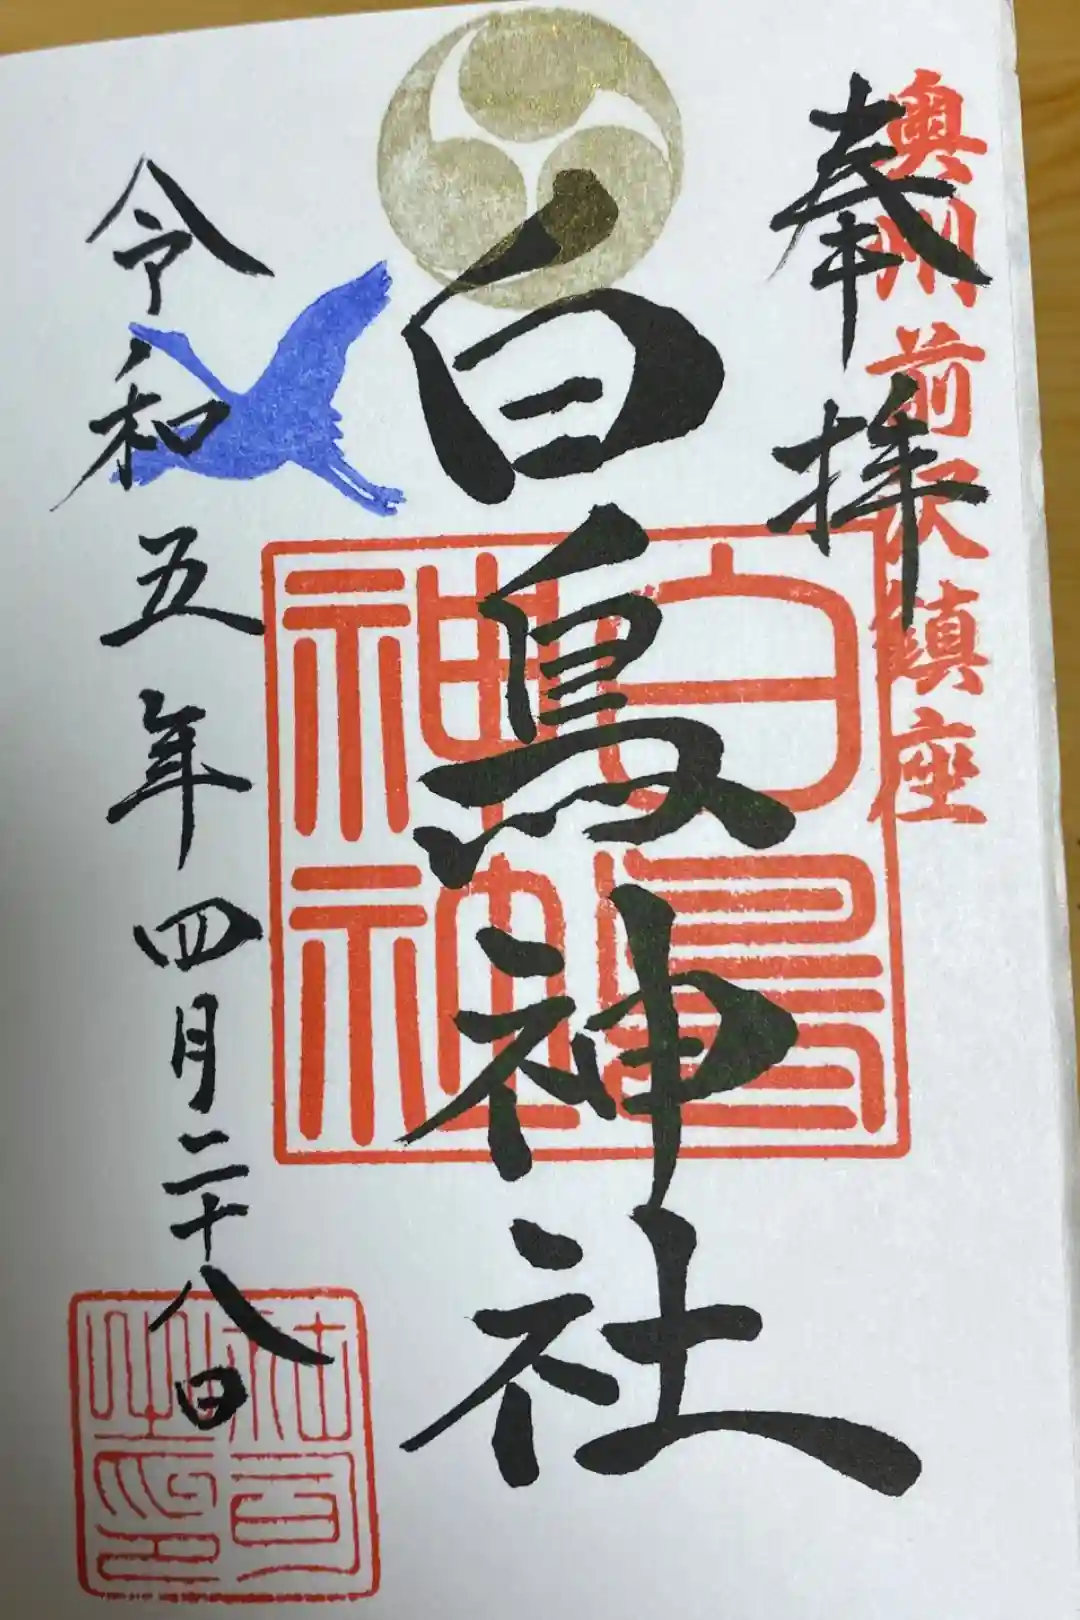 奥州前沢鎮座
奉拝
白鳥神社
白鳥
神社
令和五年四月二十八日
社司
之印